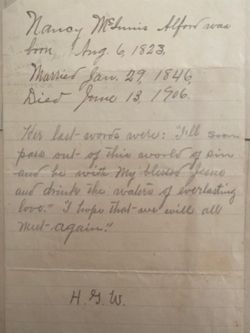 Nancy McInnis Alford was
born Aug. 6, 1823,
Married Jan. 29 1846,
Died June 13, 1906.
Her last words were: "I'll soon
pass out of this world of sin
and be with my blessed Jesus
and drink the waters of everlasting
love." "I hope that we will all
meet again."
H. G. W.